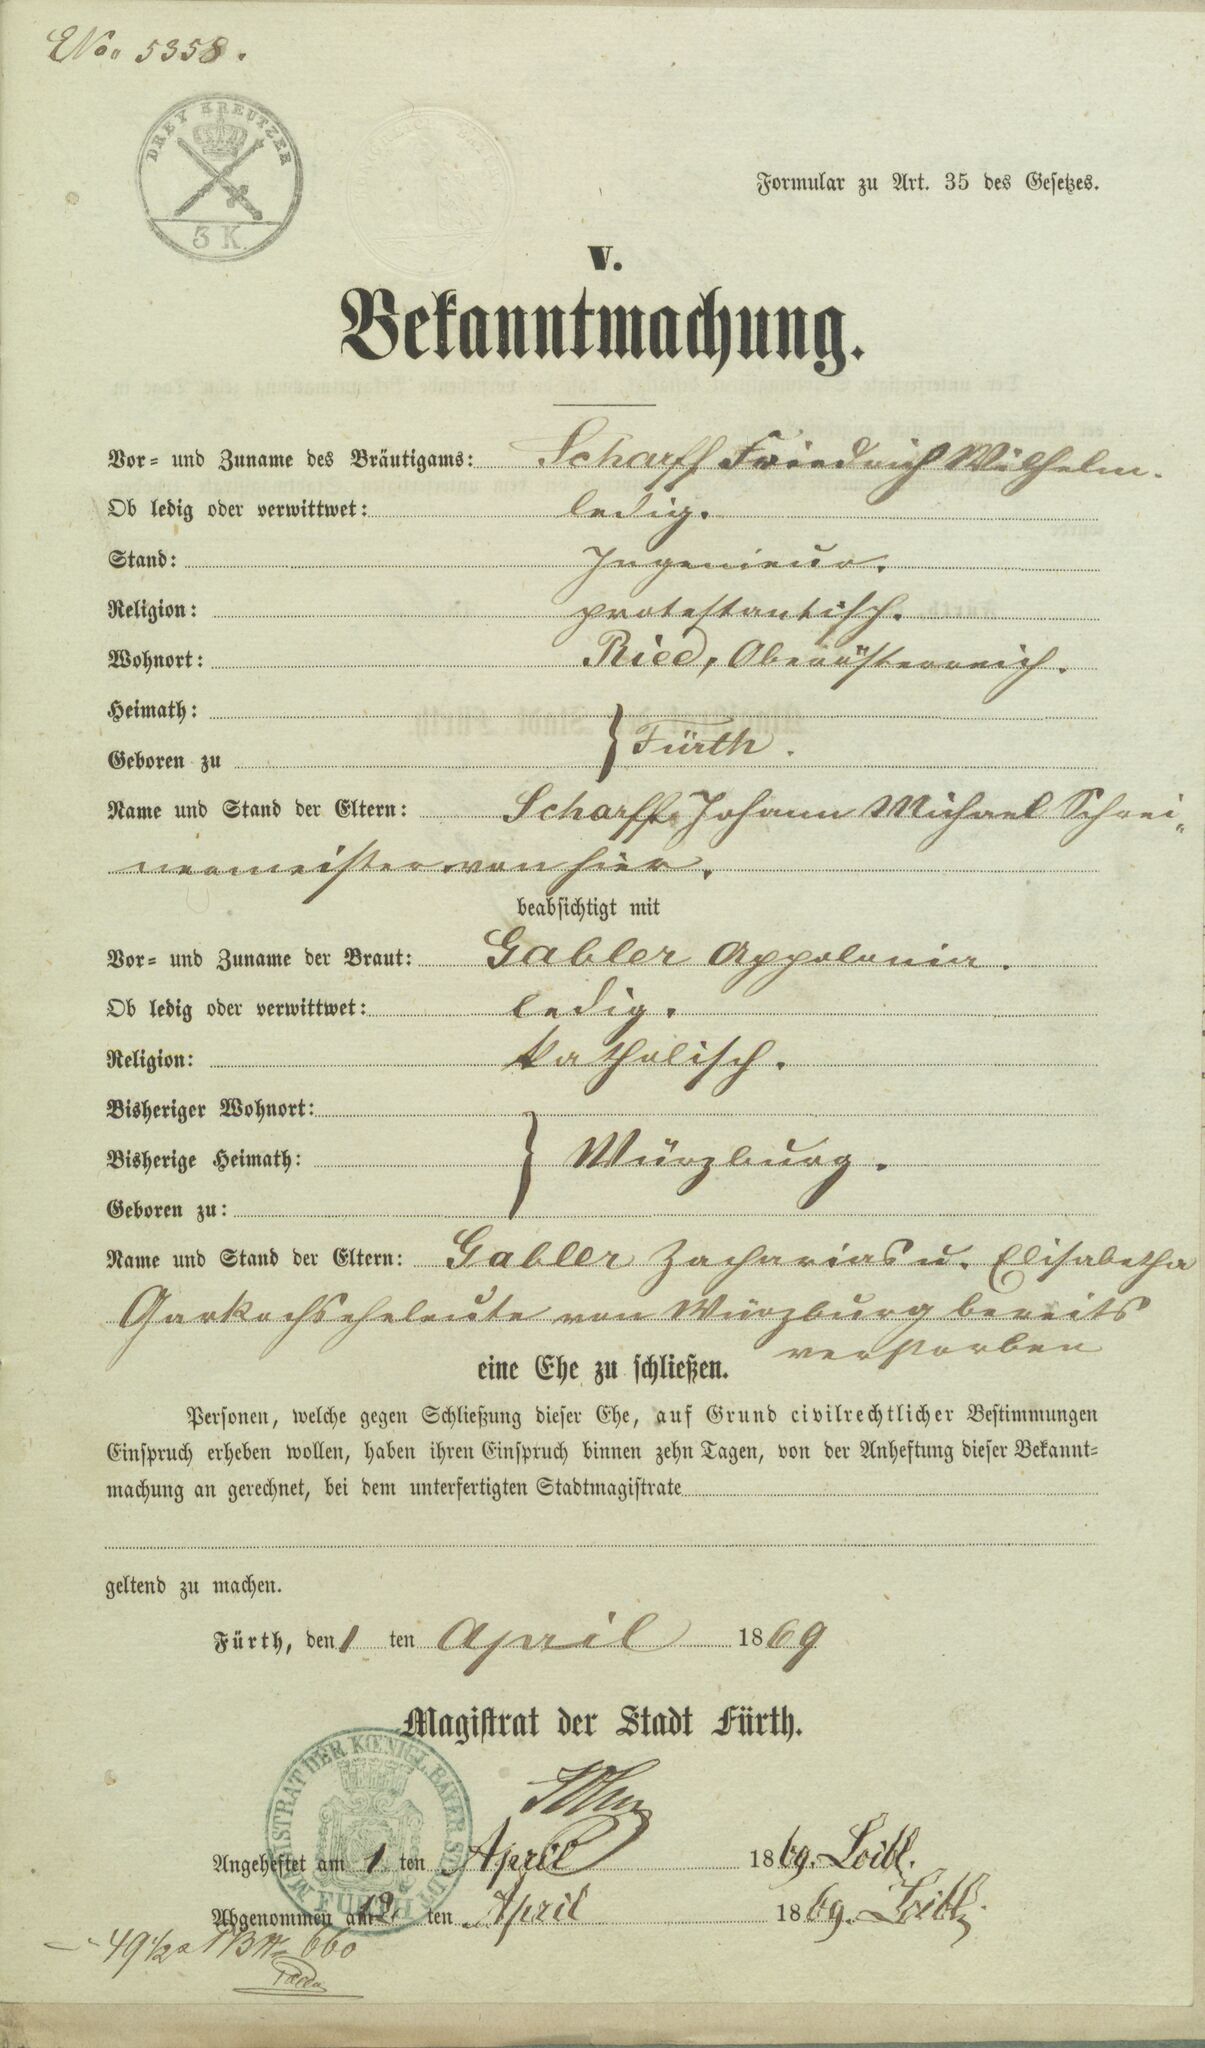 ENo. 5358.
DREY KREUTZER
3 K.
Formular zu Art. 35 des Gesetzes.
V.
Bekanntmachung.
Vor- und Zuname des Bräutigams: Scharff Friedrich Wilhelm.
Ob ledig oder verwittwet: ledig.
Stand: Ingenieur.
Religion: protestantisch.
Wohnort: Ried, Oberösterreich.
Heimath:
Geboren zu } Fürth.
Name und Stand der Eltern: Scharff Johann Michael Schrei-
nermeister von hier.
beabsichtigt mit
Vor- und Zuname der Braut: Gabler Appolonia.
Ob ledig oder verwittwet: ledig.
Religion: katholisch.
Bisheriger Wohnort:
Bisherige Heimath: } Würzburg.
Geboren zu:
Name und Stand der Eltern: Gabler Zacharias u. Elisabetha
Garkochseheleute von Würzburg bereits
verstorben
eine Ehe zu schließen.
Personen, welche gegen Schließung dieser Ehe, auf Grund civilrechtlicher Bestimmungen
Einspruch erheben wollen, haben ihren Einspruch binnen zehn Tagen, von der Anheftung dieser Bekannt-
machung an gerechnet, bei dem unterfertigten Stadtmagistrate
geltend zu machen.
Fürth, den 1 ten April 1869
Magistrat der Stadt Fürth.
MAGISTRAT DER KOENIGL. BAYER. STADT FÜRTH
Angeheftet am 1 ten April 1869. Loibl.
Abgenommen am 12 ten April 1869. Loibl.
49 1/2 660